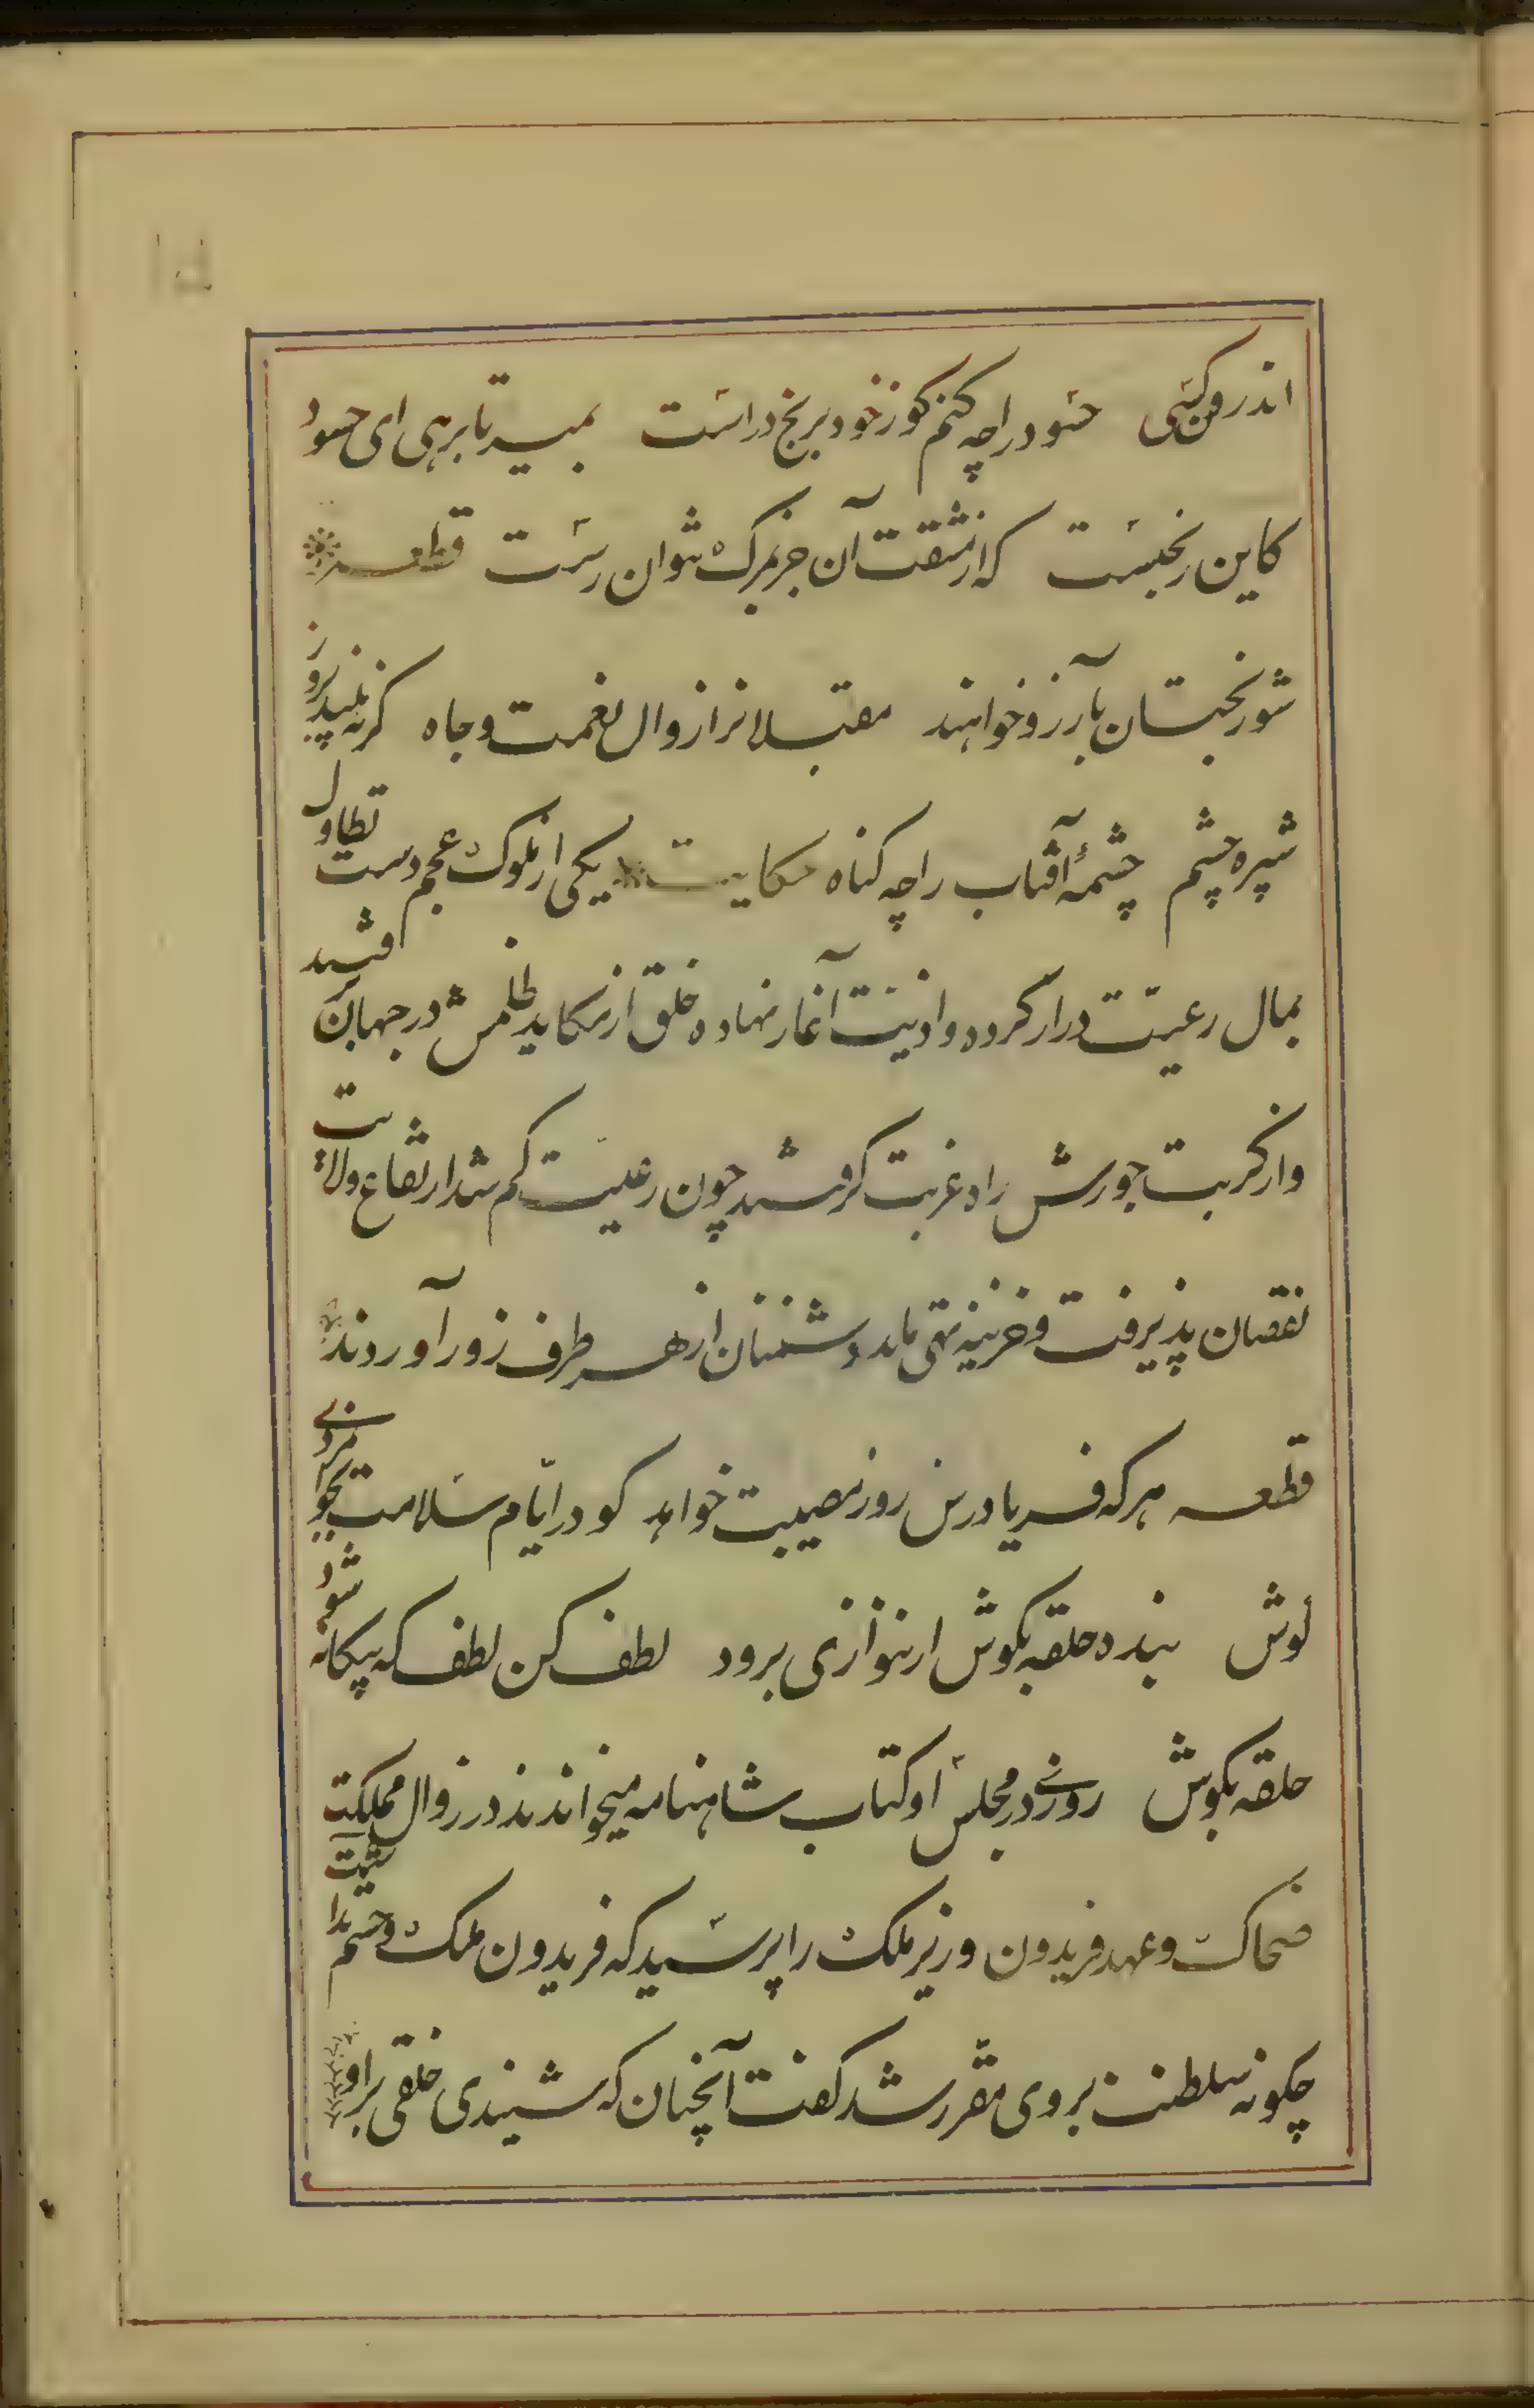 اندرون کسی حسود را چه کنم کو ز خود برنج دراست بمیر تا برهی ای حسود
کاین رنجیست که از مشقت آن جز بمرک نتوان رست قطعه
شوربختان بآرزو خواهند مقبلانرا زوال نعمت و جاه کر نه بیند بروز
شپره چشم چشمهٔ آفتاب را چه کناه حکایت یکی از ملوک عجم دست تطاول
بمال رعیّت دراز کرده و اذیّت آغاز نهاده خلق از مکاید ظلمش در جهان برفتند
واز کربت جورش راه غربت کرفتند چون رعیّت کم شد ارتفاع ولایت
نقصان پذیرفت و خزینه تهی ماند دشمنان از هر طرف زور آوردند
قطعه هرکه فریادرس روز مصیبت خواهد کو در ایّام سلامت بجوانمردی
کوش بنده حلقه بکوش ار ننوازی برود لطف کن لطف که بیکانه شود
حلقه بکوش روزی در مجلس او کتاب شاهنامه میخواندند در زوال مملکت
ضحاک و عهد فریدون وزیر ملک را پرسید که فریدون ملک و حشم نداشت
چکونه سلطنت بروی مقرر شد کفت آنچنان که شنیدی خلقی براو